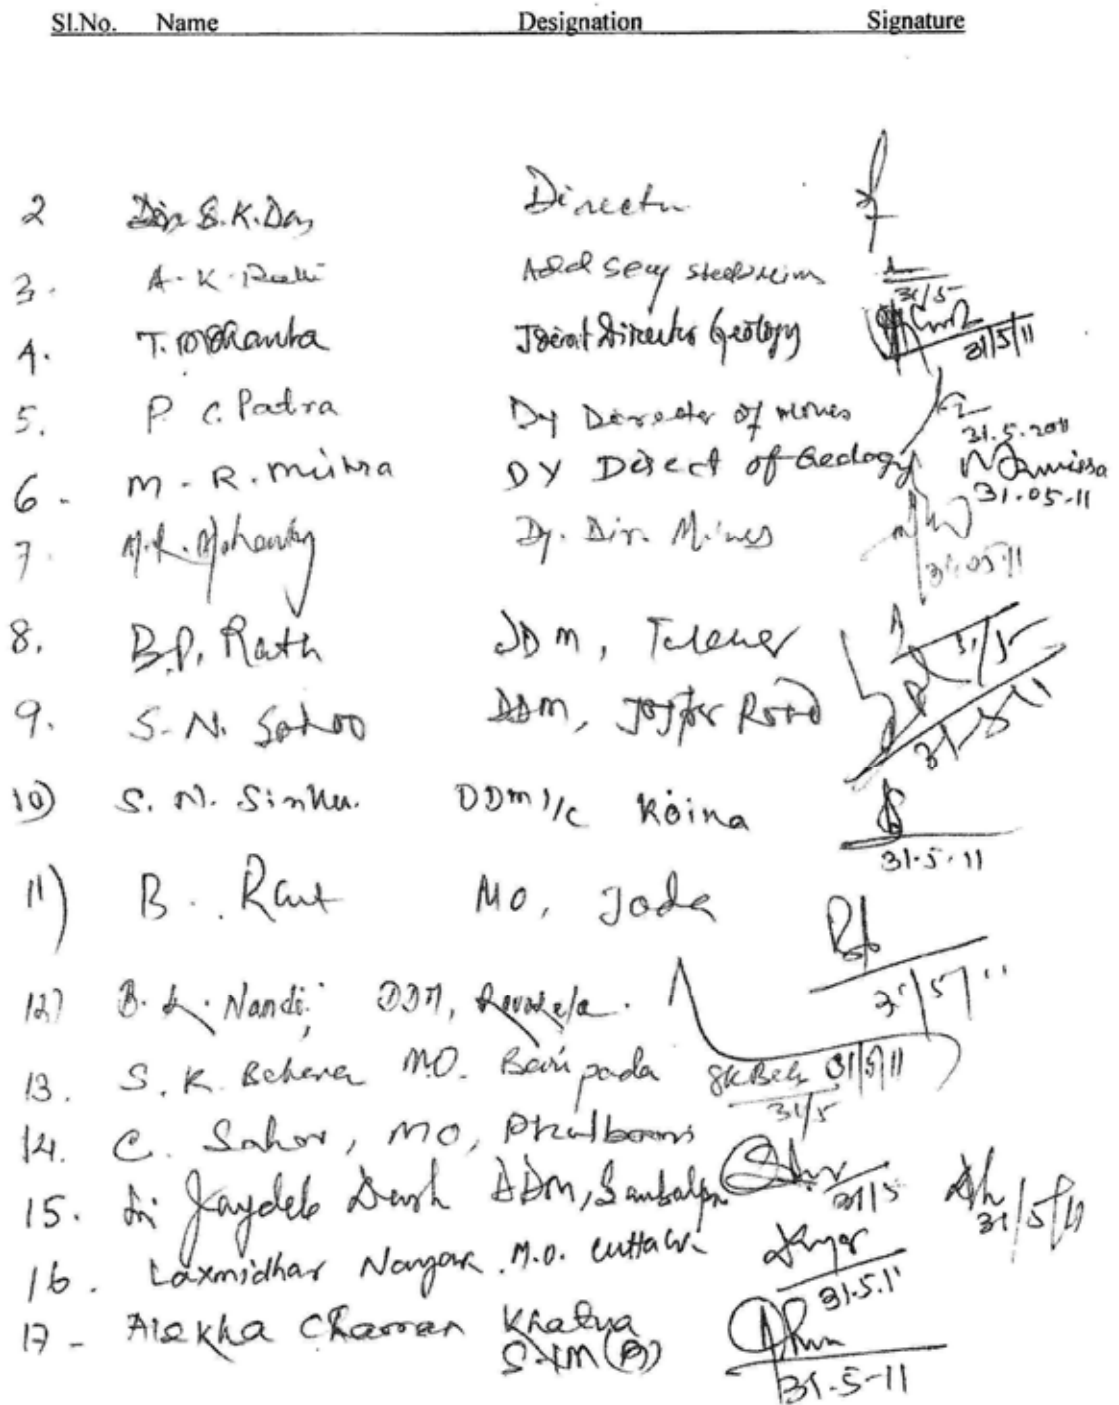 Sl.No. Name Designation Signature
2 S.K. Das Director
3. A. K. Add Secy
31/5
4. T. Mohanta Joint Director Geology
31/5/11
5. P. C. Patra Dy Director of Mines
31.5.2011
6. M. R. Mishra DY Direct of Geology
31.05.11
7. M.R. Mohanty Dy. Dir. Mines
31.05.11
8. B.P. Rath DDM, Talcher
31/5
9. S. N. Sahoo DDM, Road
31/5/11
10) S. N. DDM I/c Koira
31.5.11
11) B. Raut MO, Joda
31/5/11
12) B. K. Nandi, DDM, Rourkela.
31/5/11
13. S. K. Behera M.O. Baripada SKBeh
31/5
14. C. Sahoo, MO, Phulbani
31/5
15. Sri Jaydeb Dash DDM, Sambalpur
31/5/11
16. Laxmidhar Nayak M.O. Cuttack
31.5.11
17 - Alekha Charan
31.5-11